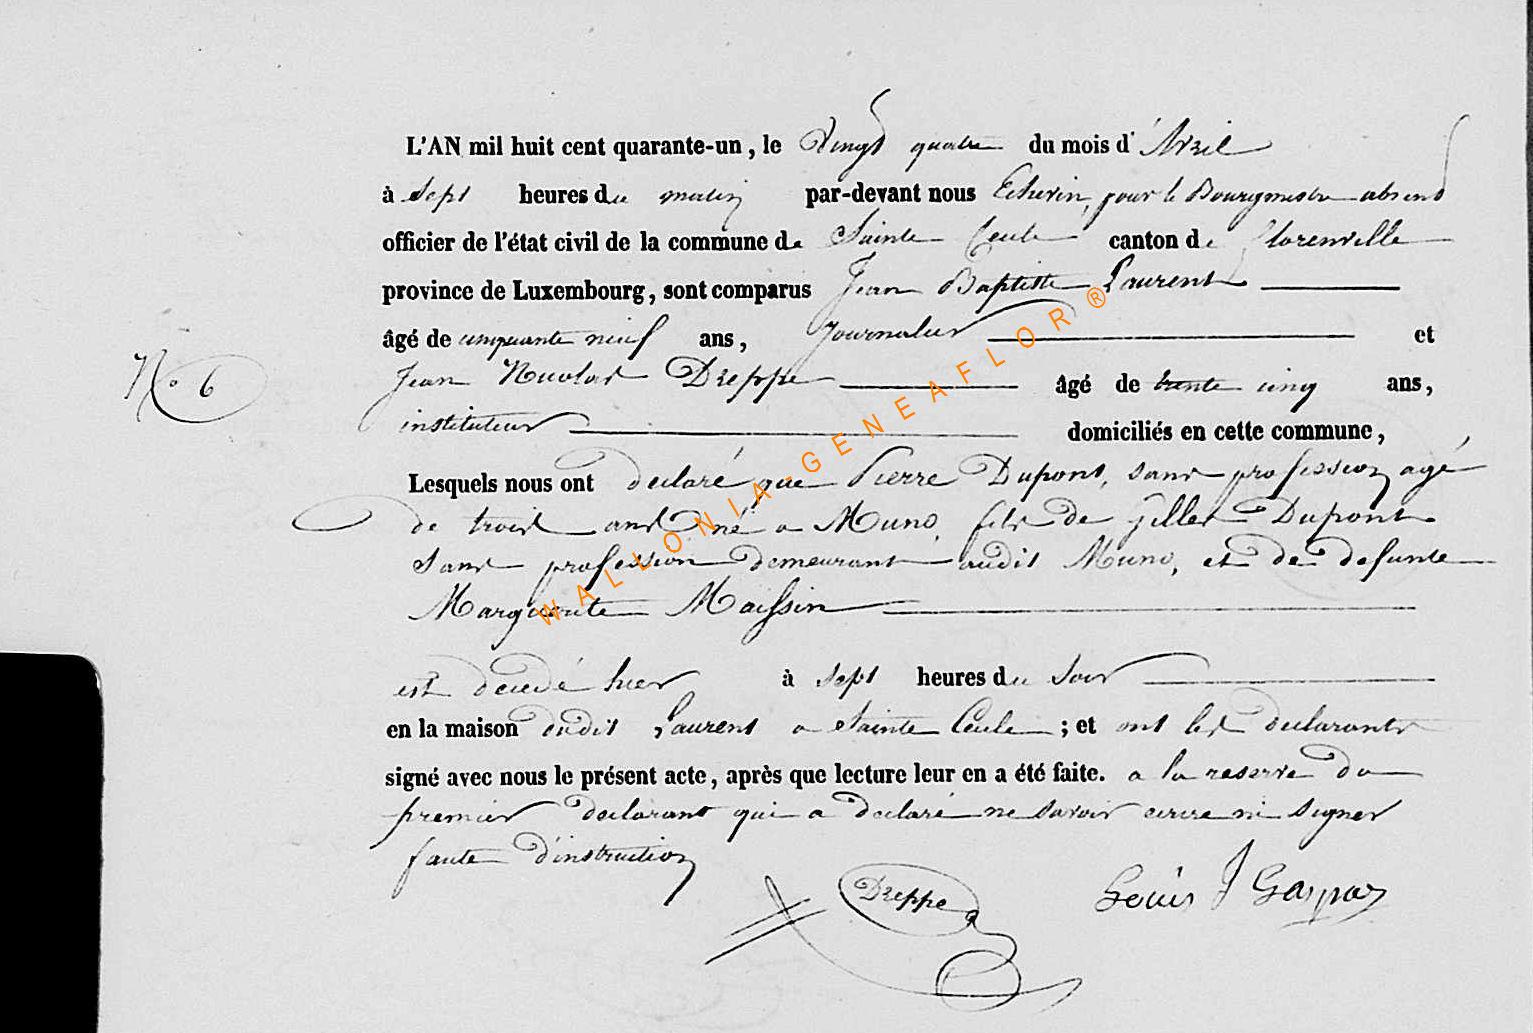 L'AN mil huit cent quarante-un, le Vingt quatre du mois d'Avril
à sept heures du matin par-devant nous Echevin, pour le Bourgmestre absent
officier de l'état civil de la commune de Sainte Cecile canton de Florenville
province de Luxembourg, sont comparus Jean Baptiste Laurent
âgé de cinquante neuf ans, Journalier et
N° 6
Jean Nicolas Dreppe âgé de trente cinq ans,
instituteur domiciliés en cette commune,
Lesquels nous ont declaré que Pierre Dupont, sans profession agé
de trois ans né a Muno, fils de Gilles Dupont
sans profession demeurant audit Muno, et de defunte
Marguerite Maissin
est decedé hier à sept heures du soir
en la maison dudit Laurent a Sainte Cecile ; et ont les declarants
signé avec nous le présent acte, après que lecture leur en a été faite. a la reserve du
premier declarant qui a declaré ne savoir ecrire ni signer
faute d'instruction
Dreppe Louis J Gaspar
WALLONIA-GENEAFLOR®